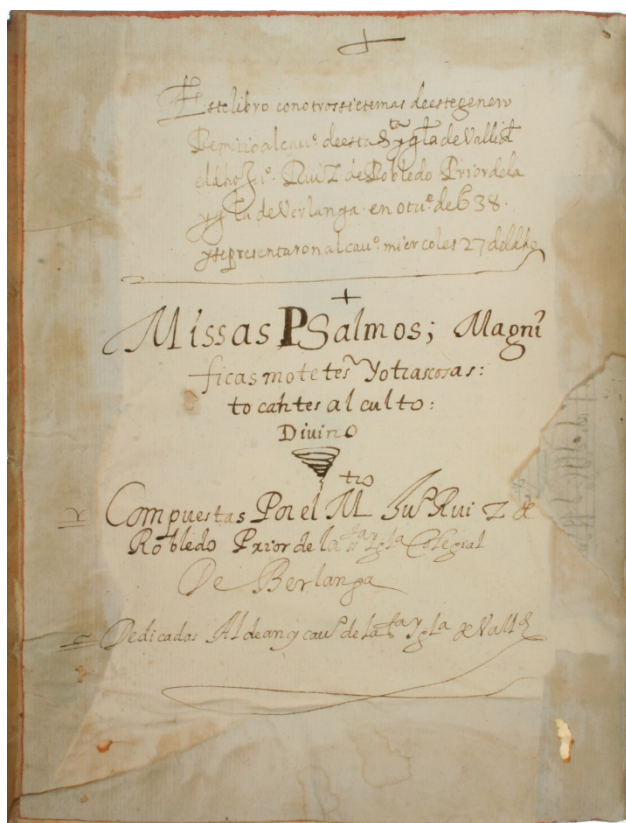 Este libro con otros siete mas de este genero
Remitio al cauº. de esta Sta ygla de Vallid
el dho Juº. Ruiz de Robledo Prior de la
ygla de Verlanga en otue. de 638.
y se presentaron al cauº. miercoles 27 del dho
Missas PSalmos; Magni
ficas motetes Y otras cosas:
tocantes al culto:
Diuino
Compuestas Por el Mtro Juº Ruiz de
Robledo Prior de la Sta ygla Colegial
De Berlanga
Dedicadas Al dean y cauº de la Sta ygla de Valld